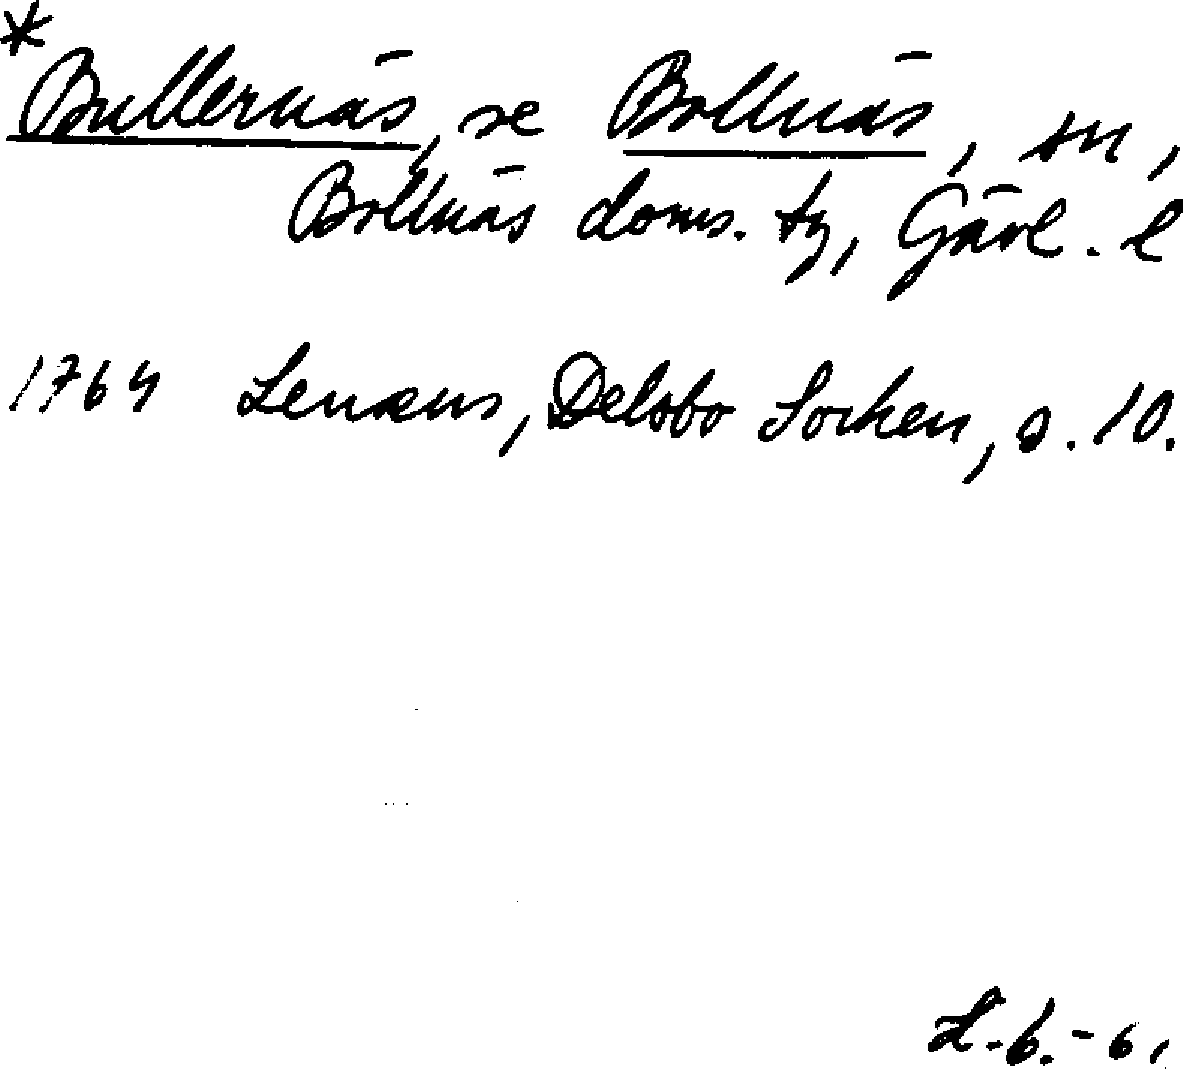 *Bullernäs, se Bollnäs, sn,
Bollnäs doms. tg, Gävl. l
1764 Lenæus, Delsbo Socken, s. 10.